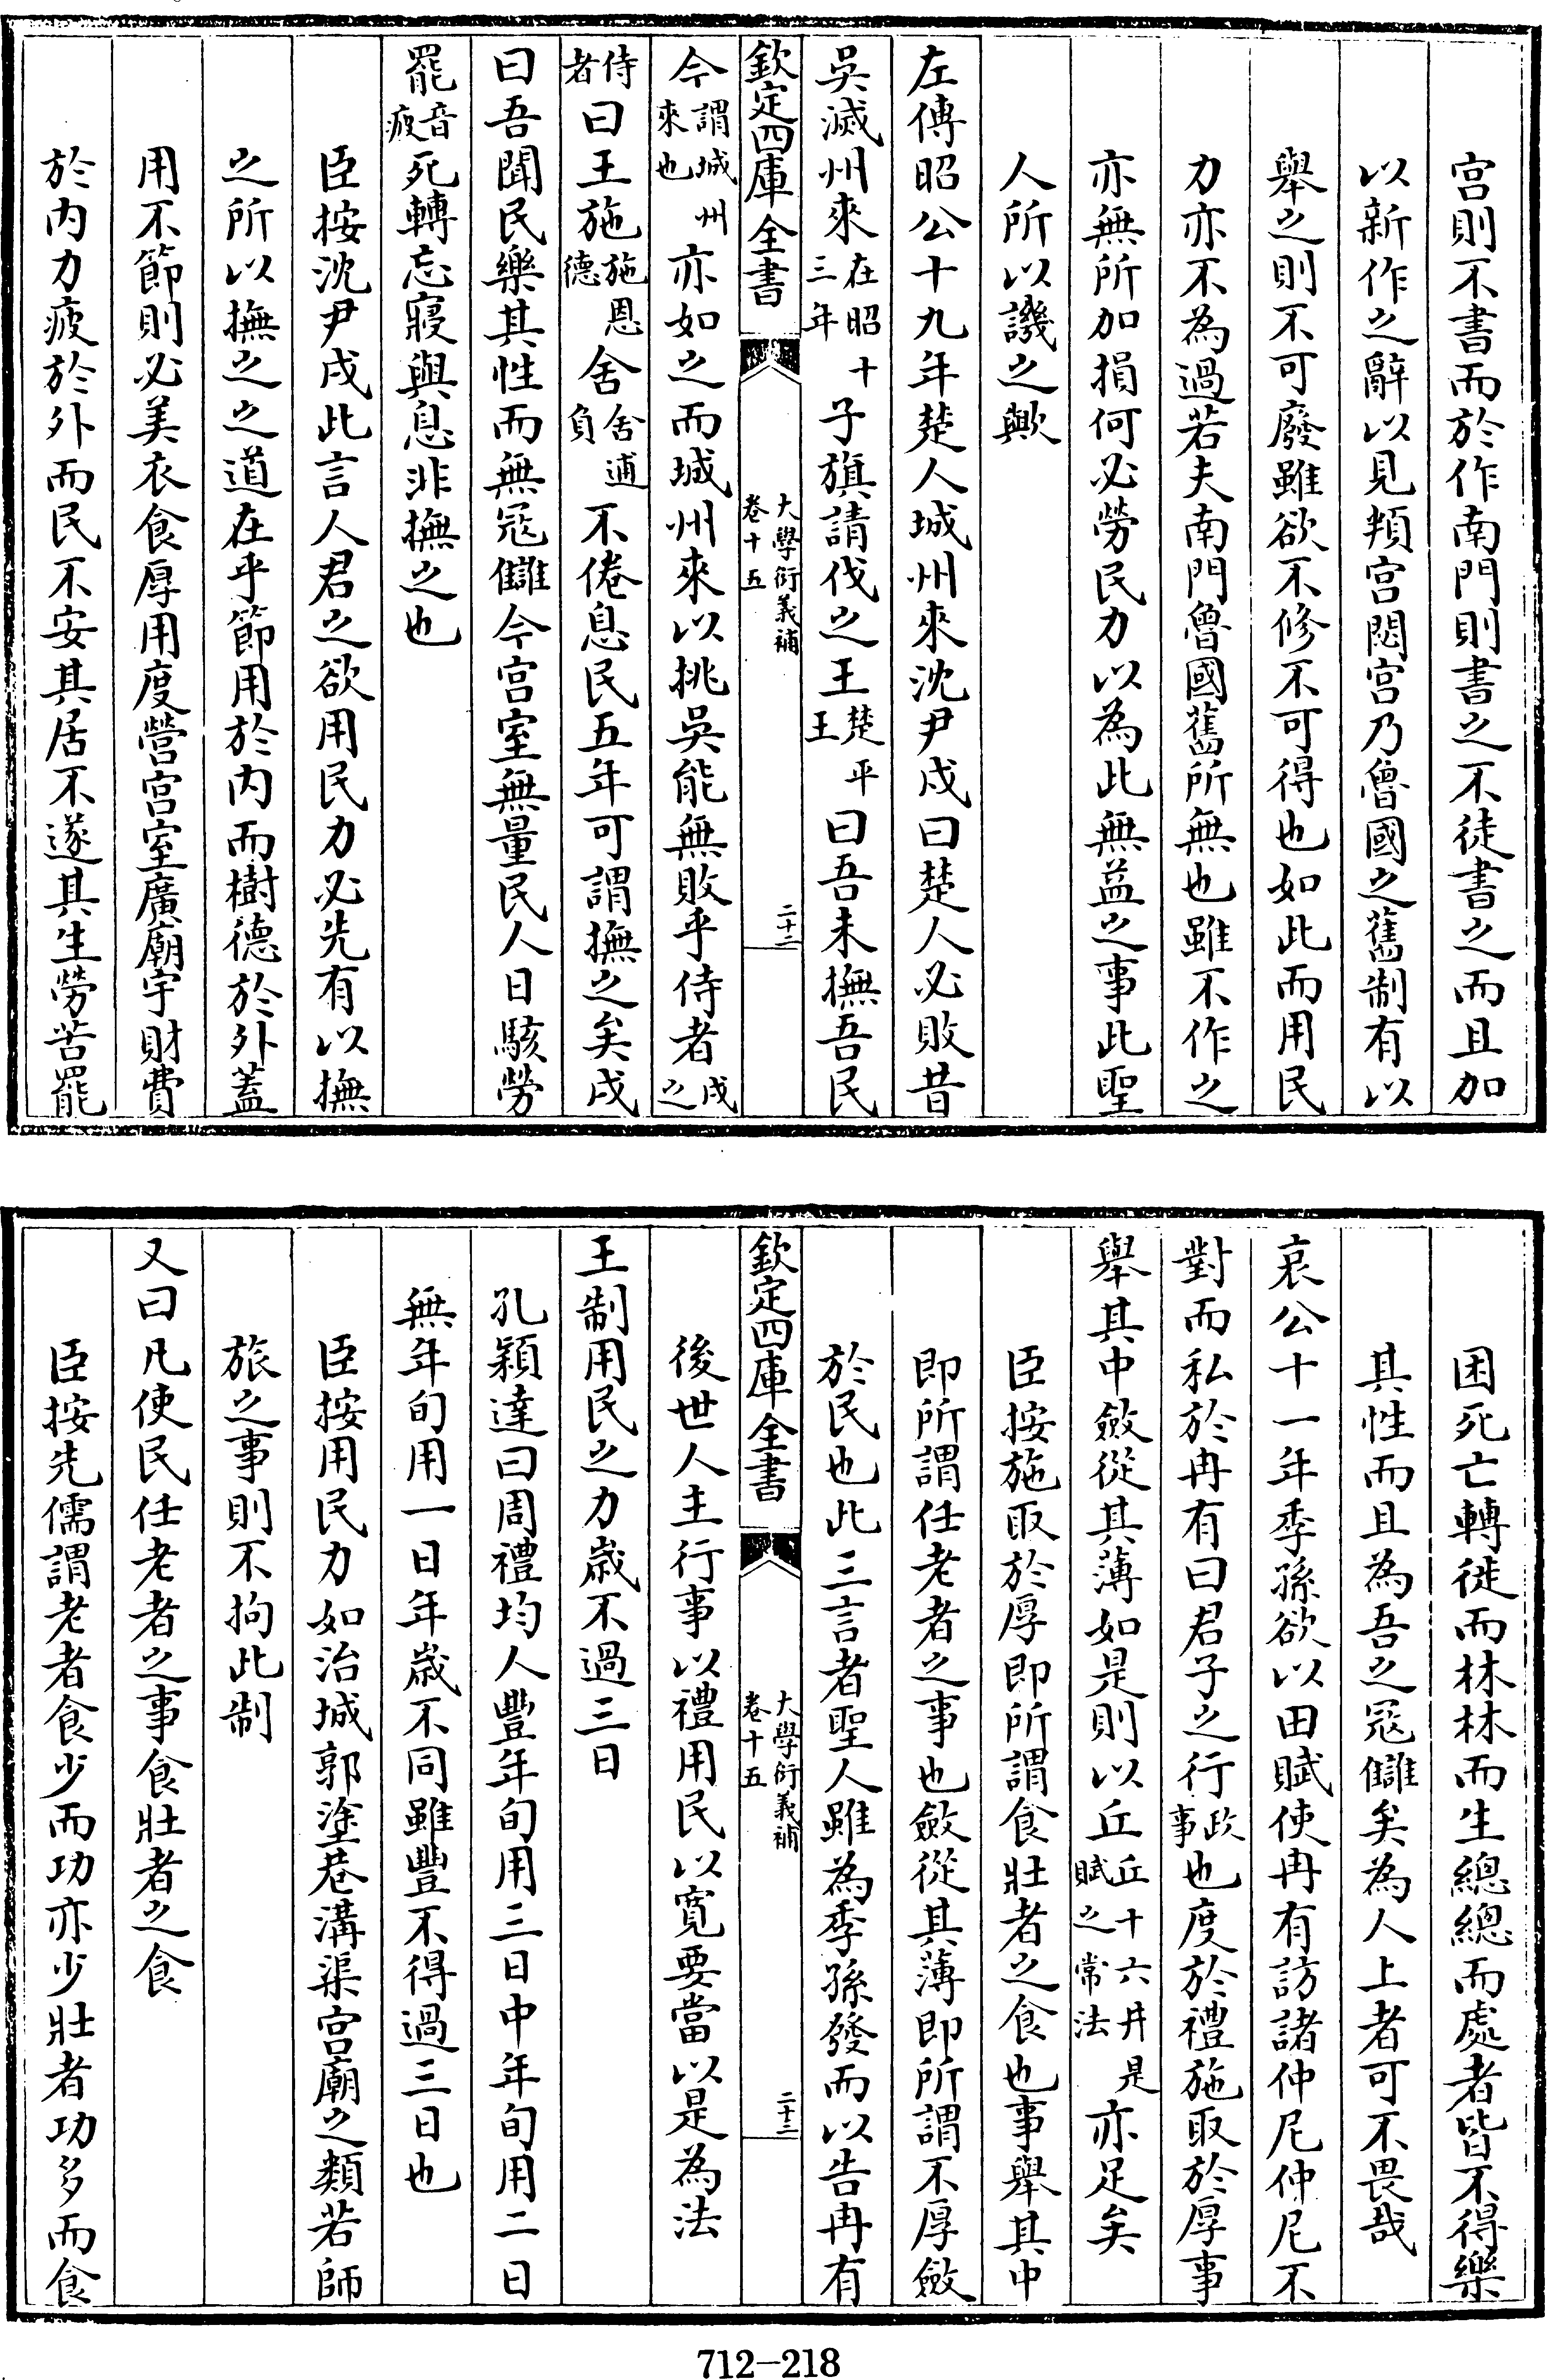 宫則不書而於作南門則書之不徒書之而且加
以新作之辭以見頖宫閟宫乃魯國之舊制有以
舉之則不可廢雖欲不修不可得也如此而用民
力亦不為過若夫南門魯國舊所無也雖不作之
亦無所加損何必勞民力以為此無益之事此聖
人所以譏之歟
左傳昭公十九年楚人城州來沈尹戌曰楚人必敗昔
吳滅州來在昭十三年子旗請伐之王楚平王曰吾未撫吾民
欽定四庫全書
大學衍義補
卷十五
二十二
今謂城州來也亦如之而城州來以挑吳能無敗乎侍者戌之
侍者曰王施施恩德舍舍逋負不倦息民五年可謂撫之矣戌
曰吾聞民樂其性而無冦讎今宫室無量民人日駭勞
罷音疲死轉忘寢與息非撫之也
臣按沈尹戌此言人君之欲用民力必先有以撫
之所以撫之之道在乎節用於内而樹德於外蓋
用不節則必美衣食厚用度營宫室廣廟宇財費
於内力疲於外而民不安其居不遂其生勞苦罷
困死亡轉徙而林林而生總總而處者皆不得樂
其性而且為吾之冦讎矣為人上者可不畏哉
哀公十一年季孫欲以田賦使冉有訪諸仲尼仲尼不
對而私於冉有曰君子之行政事也度於禮施取於厚事
舉其中斂從其薄如是則以丘丘十六井是賦之常法亦足矣
臣按施取於厚即所謂食壯者之食也事舉其中
即所謂任老者之事也斂從其薄即所謂不厚斂
於民也此三言者聖人雖為季孫發而以告冉有
欽定四庫全書
大學衍義補
卷十五
二十三
後世人主行事以禮用民以寛要當以是為法
王制用民之力歲不過三日
孔穎達曰周禮均人豐年旬用三日中年旬用二日
無年旬用一日年歲不同雖豐不得過三日也
臣按用民力如治城郭塗巷溝渠宫廟之類若師
旅之事則不拘此制
又曰凡使民任老者之事食壯者之食
臣按先儒謂老者食少而功亦少壯者功多而食
712-218